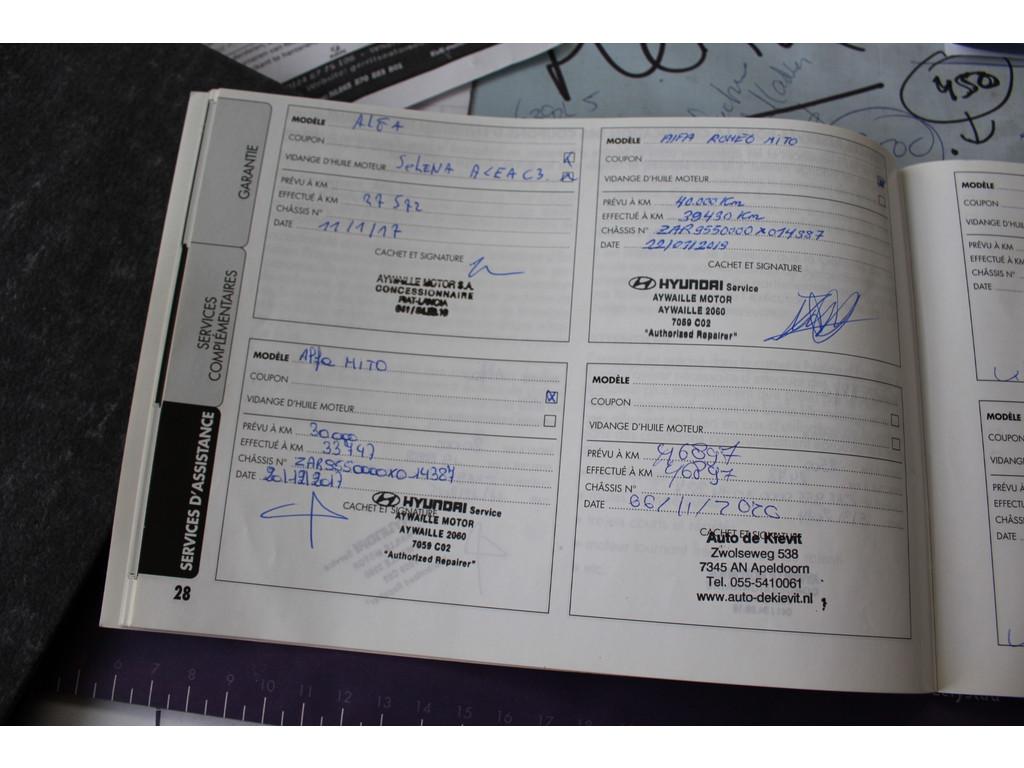 GARANTIE
SERVICES
COMPLÉMENTAIRES
SERVICES D'ASSISTANCE
28
MODÈLE ALFA
COUPON
VIDANGE D'HUILE MOTEUR SELENA ACEA C3
PRÉVU À KM
EFFECTUÉ À KM 27 572
CHÂSSIS N°
DATE 11/1/17
CACHET ET SIGNATURE
AYWAILLE MOTOR S.A.
CONCESSIONNAIRE
FIAT-LANCIA
MODÈLE Alfa MITO
COUPON
VIDANGE D'HUILE MOTEUR
PRÉVU À KM 30000
EFFECTUÉ À KM 33947
CHÂSSIS N° ZAR9550000X014387
DATE 20/12/2017
CACHET ET SIGNATURE
HYUNDAI Service
AYWAILLE MOTOR
AYWAILLE 2060
7059 C02
"Authorized Repairer"
MODÈLE ALFA ROMEO MITO
COUPON
VIDANGE D'HUILE MOTEUR
PRÉVU À KM 40.000 Km
EFFECTUÉ À KM 39430 Km
CHÂSSIS N° ZAR9550000X014387
DATE 22/07/2019
CACHET ET SIGNATURE
HYUNDAI Service
AYWAILLE MOTOR
AYWAILLE 2060
7059 C02
"Authorized Repairer"
MODÈLE
COUPON
VIDANGE D'HUILE MOTEUR
PRÉVU À KM 46897
EFFECTUÉ À KM 46897
CHÂSSIS N°
DATE 06/11/2020
CACHET ET SIGNATURE
Auto de Kievit
Zwolseweg 538
7345 AN Apeldoorn
Tel. 055-5410061
www.auto-dekievit.nl
MODÈLE
COUPON
VIDANGE D'HUI
PRÉVU À KM
EFFECTUÉ À KM
CHÂSSIS N°
DATE
MODÈLE
COUPON
VIDANG
PRÉVU À
EFFECTU
CHÂSSI
DATE
450
6 7 8 9 10 11 12 13 14 15 16 17 18